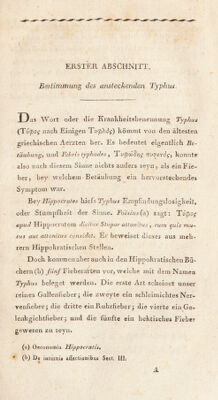 ERSTER ABSCHNITT.
Bestimmung des ansteckenden Typhus.
Das Wort oder die Krankheitsbenennung Typhus
(Τύφος nach Einigen Τυφὸς) kömmt von den ältesten
griechischen Aerzten her. Es bedeutet eigentlich Be-
täubung, und Febris typhodes, Τυφώδης πυρετός, konnte
also nach diesem Sinne nichts anders seyn, als ein Fie-
ber, bey welchem Betäubung ein hervorstechendes
Symptom war.
Bey Hippocrates hiefs Typhus Empfindungslosigkeit,
oder Stumpfheit der Sinne. Foësius (a) sagt: Τύφος
apud Hippocratem dicitur Stupor attonitus, cum quis mutus
aut attonitus considet. Es beweiset dieses aus meh-
rern Hippokratischen Stellen.
Doch kommen aber auch in den Hippokratischen Bü-
chern (b) fünf Fieberarten vor, welche mit dem Namen
Typhus belegt werden. Die erste Art scheint unser
reines Gallenfieber; die zweyte ein schleimichtes Ner-
venfieber; die dritte ein Ruhrfieber; die vierte ein Ge-
lenkgichtfieber; und die fünfte ein hektisches Fieber
gewesen zu seyn.
(a) Oeconomia Hippocratis.
(b) De internis affectionibus Sect. III.
A